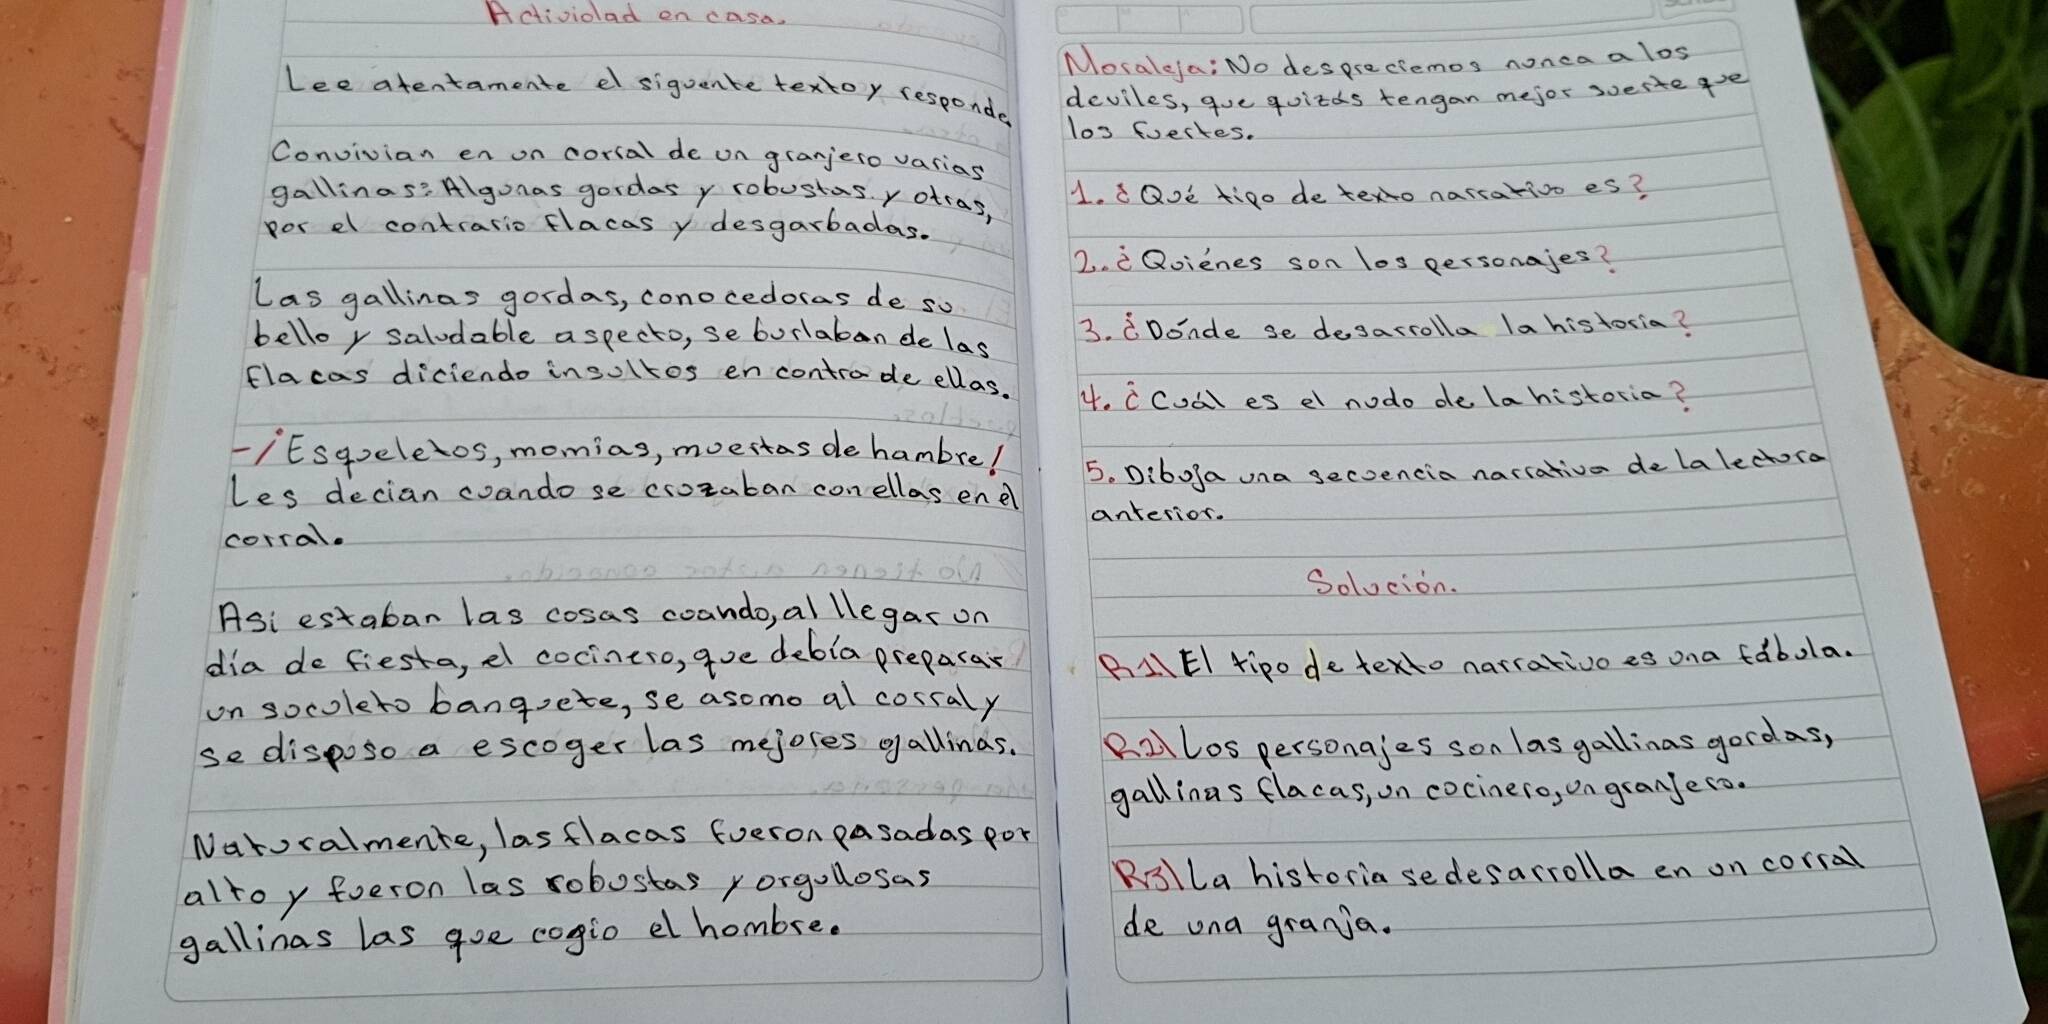 Actividad en casa.
Lee atentamente el siguente texto y responde.
Convivian en un corral de un granjero varias
gallinas: Algunas gordas y robustas y otras,
por el contrario flacas y desgarbadas.
Las gallinas gordas, conocedoras de su
bello y saludable aspecto, se burlaban de las
flacas diciendo insultos en contra de ellas.
-¡Esqueletos, momias, muertas de hambre!
Les decian cuando se cruzaban con ellas en el
corral.
Asi estaban las cosas cuando, al llegar un
día de fiesta, el cocinero, que debía preparar
un suculeto banquete, se asomo al corral y
se dispuso a escoger las mejores gallinas.
Naturalmente, las flacas fueron pasadas por
alto y fueron las robustas y orgullosas
gallinas las que cogio el hombre.
Moraleja: No despreciemos nunca a los
deviles, que quizás tengan mejor suerte que
los fuertes.
1. ¿Qué tipo de texto narrativo es?
2. ¿Quiénes son los personajes?
3. ¿Dónde se desarrolla la historia?
4. ¿Cuál es el nudo de la historia?
5. Dibuja una secuencia narrativa de la lectura
anterior.
Solución.
R1\ El tipo de texto narrativo es una fábula.
R2\ Los personajes son las gallinas gordas,
gallinas flacas, un cocinero, un granjero.
R3\ La historia se desarrolla en un corral
de una granja.